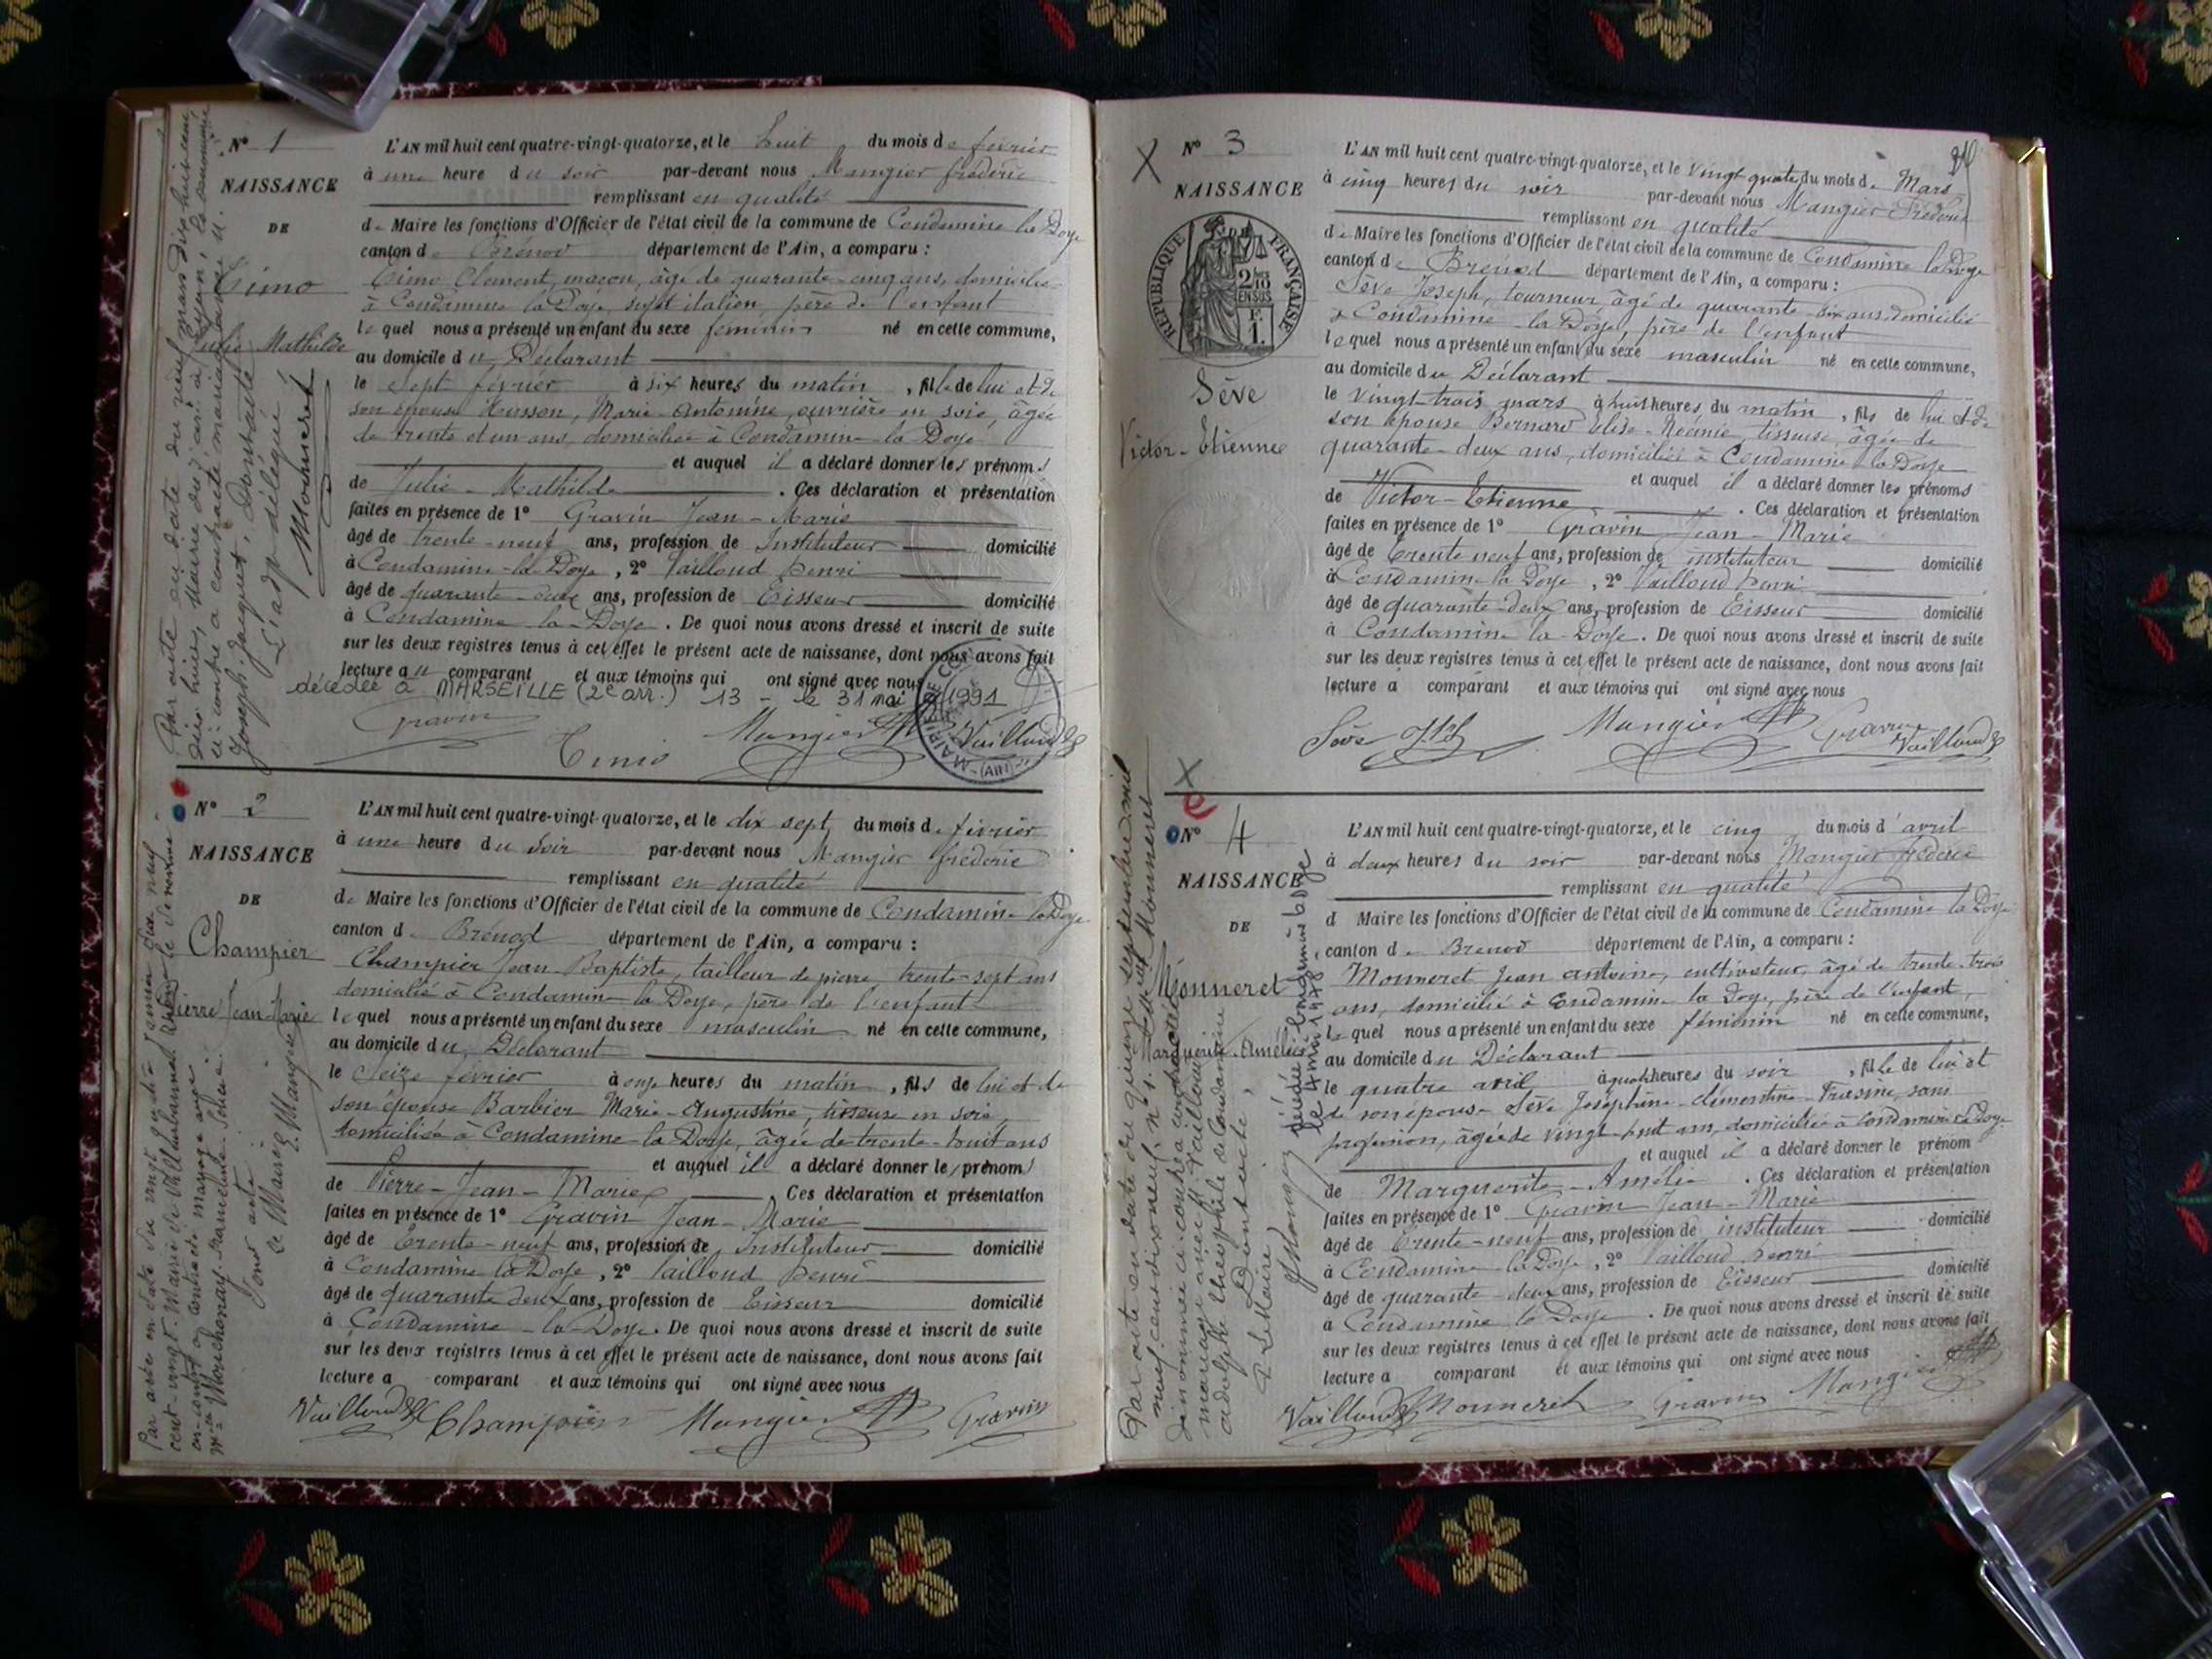 N° 1
NAISSANCE
DE
Timo
Julie Mathilde
L'AN mil huit cent quatre-vingt-quatorze, et le huit du mois de février
à une heure du soir par-devant nous Mangier frédéric
remplissant en qualité
de Maire les fonctions d'Officier de l'état civil de la commune de Condamine la Doye
canton de Brénod département de l'Ain, a comparu :
Timo Clément, maçon, âgé de quarante-cinq ans, domicilié
à Condamine la Doye, sujet italien, père de l'enfant
lequel nous a présenté un enfant du sexe féminin né en cette commune,
au domicile du Déclarant
le Sept février à six heures du matin, fille de lui et de
son épouse Husson, Marie-Antonine, ouvrière en soie, âgée
de trente et un ans, domiciliée à Condamine la Doye
et auquel il a déclaré donner les prénoms
de Julie-Mathilde. Ces déclaration et présentation
faites en présence de 1° Gravin Jean-Marie
âgé de trente-neuf ans, profession de Instituteur domicilié
à Condamine-la-Doye, 2° Vailloud henri
âgé de quarante-deux ans, profession de Tisseur domicilié
à Condamine la-Doye. De quoi nous avons dressé et inscrit de suite
sur les deux registres tenus à cet effet le présent acte de naissance, dont nous avons fait
lecture au comparant et aux témoins qui ont signé avec nous
décédée à MARSEILLE (2e arr.) 13 - le 31 mai 1991
Gravin Timo Mangier Vailloud
MAIRIE DE (AIN)
Par acte en date du neuf mars dix-huit cent
ci contre a contracté mariage avec M.
Joseph Jacquet, Dont acte
L'adjt délégué
Monneret
N° 2
NAISSANCE
DE
Champier
Pierre Jean-Marie
L'AN mil huit cent quatre-vingt-quatorze, et le dix sept du mois de février
à une heure du soir par-devant nous Mangier frédéric
remplissant en qualité
de Maire les fonctions d'Officier de l'état civil de la commune de Condamine la Doye
canton de Brénod département de l'Ain, a comparu :
Champier Jean-Baptiste, tailleur de pierre trente-sept ans
domicilié à Condamine la Doye, père de l'enfant
lequel nous a présenté un enfant du sexe masculin né en cette commune,
au domicile du Déclarant
le Seize février à onze heures du matin, fils de lui et de
son épouse Barbier Marie-Augustine, tisseuse en soie,
domiciliée à Condamine la Doye, âgée de trente-huit ans
et auquel il a déclaré donner les prénoms
de Pierre-Jean-Marie. Ces déclaration et présentation
faites en présence de 1° Gravin Jean-Marie
âgé de Trente-neuf ans, profession de Instituteur domicilié
à Condamine la Doye, 2° Vailloud henri
âgé de quarante deux ans, profession de Tisseur domicilié
à Condamine-la-Doye. De quoi nous avons dressé et inscrit de suite
sur les deux registres tenus à cet effet le présent acte de naissance, dont nous avons fait
lecture a comparant et aux témoins qui ont signé avec nous
Vailloud Champier Mangier Gravin
cent vingt. Mairie de Villeurbanne
ci-contre a contracté mariage avec
Dont acte
Le Maire, E. Mangier
N° 3
NAISSANCE
REPUBLIQUE FRANÇAISE
Sève
Victor-Etienne
L'AN mil huit cent quatre-vingt-quatorze, et le vingt quatre du mois de Mars
à cinq heures du soir par-devant nous Mangier Frédéric
remplissant en qualité
de Maire les fonctions d'Officier de l'état civil de la commune de Condamine la Doye
canton de Brénod département de l'Ain, a comparu :
Sève Joseph, tourneur, âgé de quarante-six ans domicilié
à Condamine-la Doye, père de l'enfant
lequel nous a présenté un enfant du sexe masculin né en cette commune,
au domicile du Déclarant
le vingt-trois mars à huit heures du matin, fils de lui et de
son épouse Bernard Elise-Noémie, tisseuse, âgée de
quarante-deux ans, domiciliée à Condamine la Doye
et auquel il a déclaré donner les prénoms
de Victor-Etienne. Ces déclaration et présentation
faites en présence de 1° Gravin Jean-Marie
âgé de Trente neuf ans, profession de instituteur domicilié
à Condamine la Doye, 2° Vailloud henri
âgé de quarante-deux ans, profession de Tisseur domicilié
à Condamine la-Doye. De quoi nous avons dressé et inscrit de suite
sur les deux registres tenus à cet effet le présent acte de naissance, dont nous avons fait
lecture a comparant et aux témoins qui ont signé avec nous
Sève Mangier Gravin Vailloud
N° 4
NAISSANCE
DE
Monneret
Marguerite-Amélie
L'AN mil huit cent quatre-vingt-quatorze, et le cinq du mois d'avril
à deux heures du soir par-devant nous Mangier frédéric
remplissant en qualité
d Maire les fonctions d'Officier de l'état civil de la commune de Condamine la Doye
canton de Brenod département de l'Ain, a comparu :
Monneret Jean antoine, cultivateur, âgé de trente-trois
ans, domicilié à Condamine la Doye, père de l'enfant,
lequel nous a présenté un enfant du sexe féminin né en cette commune,
au domicile du Déclarant
le quatre avril à quatre heures du soir, fille de lui et
de son épouse Sève Joséphine-clémentine-Frasine, sans
profession, âgée de vingt-huit ans, domiciliée à Condamine la Doye
et auquel il a déclaré donner le prénom
de Marguerite-Amélie. Ces déclaration et présentation
faites en présence de 1° Gravin Jean-Marie
âgé de Trente-neuf ans, profession de instituteur domicilié
à Condamine la Doye, 2° Vailloud henri
âgé de quarante-deux ans, profession de Tisseur domicilié
à Condamine la Doye. De quoi nous avons dressé et inscrit de suite
sur les deux registres tenus à cet effet le présent acte de naissance, dont nous avons fait
lecture a comparant et aux témoins qui ont signé avec nous
Vailloud Monneret Gravin Mangier
Par acte en date du quinze septembre mil
neuf cent dix neuf, n° 1.
mariage avec M. Vailloud
adolphe théophile de Condamine
Dont acte,
P. Le Maire